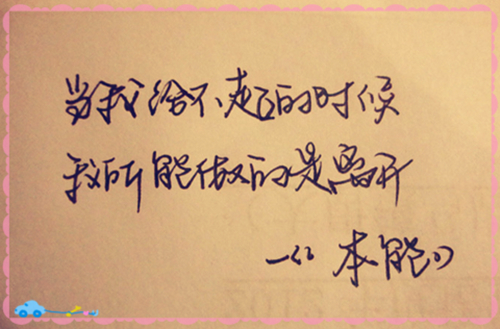 当我给不起的时候
我所能做的是离开
—《本能》